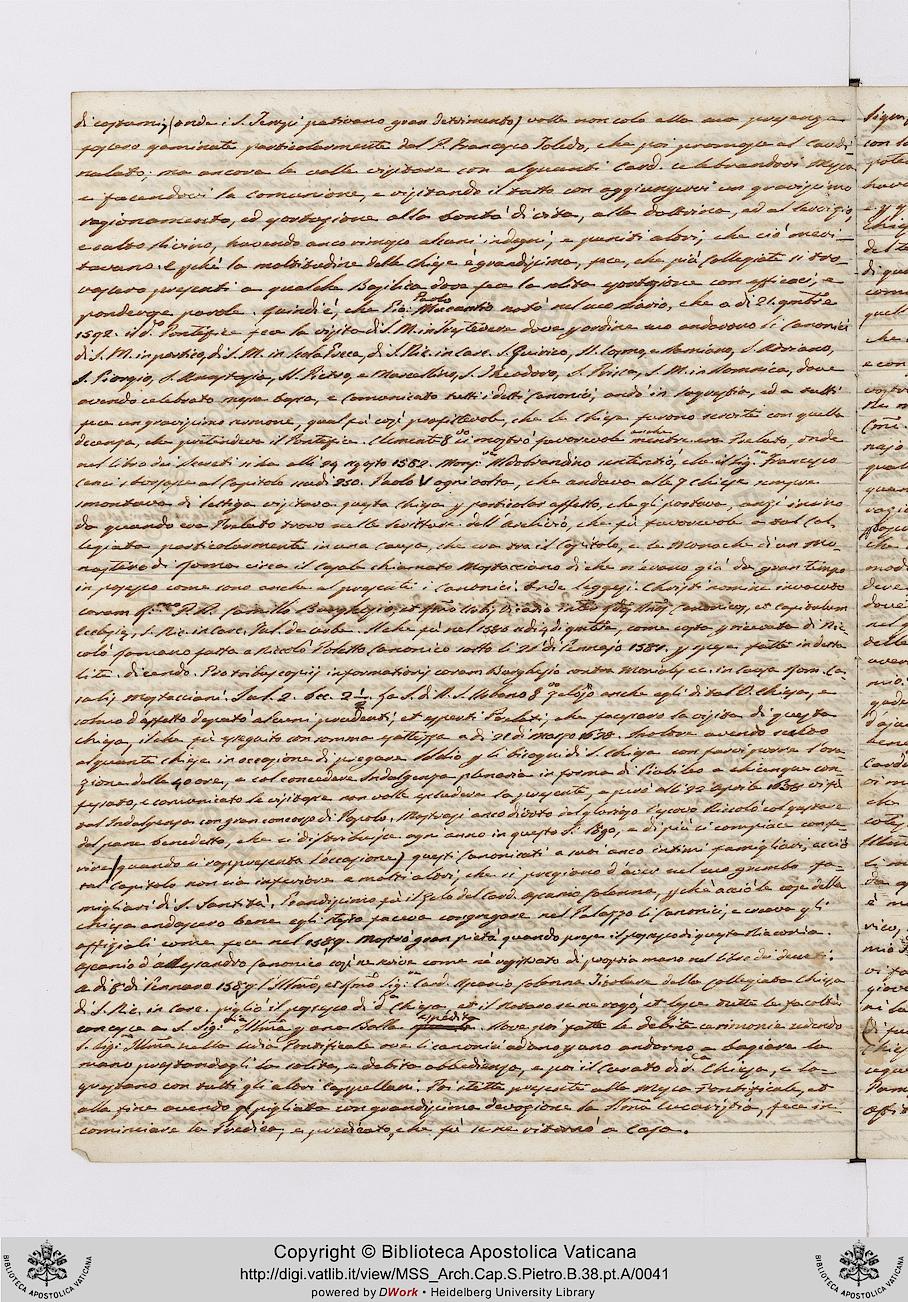 di costumi, (onde i S. Tempj pativano gran detrimento) volle non solo alla sua presenza
fossero esaminati particolarmente dal P. Francesco Toledo, che poi promosse al Cardi-
nalato; ma ancora le volle visitare con alquanti Card. celebrandovi Messa
e facendovi la comunione, e visitando il tutto con aggiungervi un gravissimo
ragionamento, ed esortazione alla bontà di vita, alla dottrina, ed al servizio,
e culto divino, havendo anco rimossi alcuni indegni, e puniti altri, che ciò meri-
tavano. E perchè la moltitudine delle Chiese è grandissima, fece, che più Collegiate si tro-
vassero presenti a qualche Basilica, dove fea la solita esortazione con efficaci, e
ponderose parole. Quindi è, che Gio: Paolo Mucantio notò nel suo diario, che a dì 21. Gmbre
1592. il do. Pontefice fece la visita di S. M. in Trastevere dove per ordine suo andarono li Canonici
di S. M. in portico, di S. M. in Scola Greca, di S. Nic. in Carc. S. Quirico, SS. Cosmo, e Damiano, S. Adriano,
S. Giorgio, S. Anastasia, SS. Pietro, e Marcellino, S. Theodoro, S. Prisca, S. M. in Domnica, dove
avendo celebrato messa bassa, e comunicato tutti i detti Canonici, andò in sagrestia, ed a tutti
fece un gravissimo sermone, qual fu così profittevole, che le Chiese furono servite con quella
decenza, che pretendeva il Pontefice. Clemente 8vo si mostrò favorevole anche mentre era Prelato, onde
nel libro dei Decreti si ha alli 29 Agosto 1582. Monsr. Aldobrandino sententiò, che il Sigr. Francesco
Cenci sborsasse al Capitolo scudi 250. Paolo V ogni volta, che andava alle 7 Chiese sempre
smontava di lettiga visitava questa Chiesa per particolar affetto, che gli portava, anzi insino
da quando era Prelato trovo nelle scritture dell'Archivio, che fu favorevole a tal Col-
legiata particolarmente in una causa, che era tra il Capitolo, e le Monache di un Mo-
nastero di Roma circa il casale chiamato Mostacciano di che n'erano già da gran tempo
in possesso come sono anche al presente i Canonici
coram R. P. D. Camillo Burghesio, et
Ecclesiae, S. Nic. in Carc. Tul. de Urbe. Il che fu nel 1580 a dì 4 di Gmbre, come costa per ricevuta di Nic-
colò Romano fatta a Niccolò Poletto Canonico sotto li 21 di Gennajo 1581. per spese fatte in detta
lite. dicendo. Pro tribus copiis informationis coram Burghesio contra Moniales &c. in causa Rom. Ca-
salis Mostacciani. Sol. 2. Bcc. 2 1/2. La S. di N. S. Urbano 8vo zeloso anche egli di tal V. Chiesa, e
colmo d'affetto deputò alcuni prudenti, et esperti Prelati, che facessero la visita di questa
Chiesa, il che fu eseguito con somma esattezza a dì 21 di Marzo 1628. Inoltre avendo scelto
alquante chiese in occasione di pregare Iddio per li bisogni di S. Chiesa con farvi porre l'ora-
zione delle 40 ore, e col concedere Indulgenza plenaria in forma di Giubileo a chiunque con-
fessato, e comunicato le visitasse non volle escludere la presente, e però alli 22 Aprile 1638 vi fu
tal Indulgenza con gran concorso di Popolo. Mostrossi anco divoto del glorioso Vescovo Niccolò col gustare
del pane benedetto, che si distribuisce ogni anno in questo S. logo, e di più si compiace confe-
rire (quando si rappresenta l'occasione) questi Canonicati a suoi anco intimi famigliari, acciò
tal Capitolo non sia inferiore a molti altri, che si pregiano d'aver nel suo grembo fa-
migliari di S. Santità. Grandissimo fu il zelo del Card. Ascanio Colonna, perchè acciò le cose della
Chiesa andassero bene egli stesso faceva congregare nel Palazzo li Canonici, e creava gli
offiziali come fece nel 1589. Mostrò gran pietà quando prese il possesso di questa Diaconia.
Ascanio d'Allessandro Canonico così ne scrive come ne registrato di propria mano nel libro dei decreti.
A dì 8 di Gennaro 1587 l'Illmo, et Rmo Sigr. Card. Ascanio Colonna Titolare della Collegiata Chiesa
di S. Nic. in carc. pigliò il possesso di da. Chiesa, et il Notaro se ne rogò, et lesse tutte le facoltà
concesse a S. Sigria. Illma per una Bolla spedita. Dove poi fatte le debite cerimonie sedendo
S. Sigria Illma nella sedia Pontificale ove li canonici ad uno per uno andorno a baciare la
mano prestandogli la solita, e debita obbedienza, e poi il Curato di da. Chiesa, e Sa-
grestano con tutti gli altri Cappellani. Poi stette presente alla Messa Pontificale, et
alla fine avendo pigliata con grandissima devozione la SSma Eucaristia, fece in-
cominciare la Predica, e predicato, che fu se ne ritornò a Casa.
Copyright © Biblioteca Apostolica Vaticana
http://digi.vatlib.it/view/MSS_Arch.Cap.S.Pietro.B.38.pt.A/0041
powered by DWork • Heidelberg University Library
BIBLIOTECA APOSTOLICA VATICANA
BIBLIOTECA APOSTOLICA VATICANA